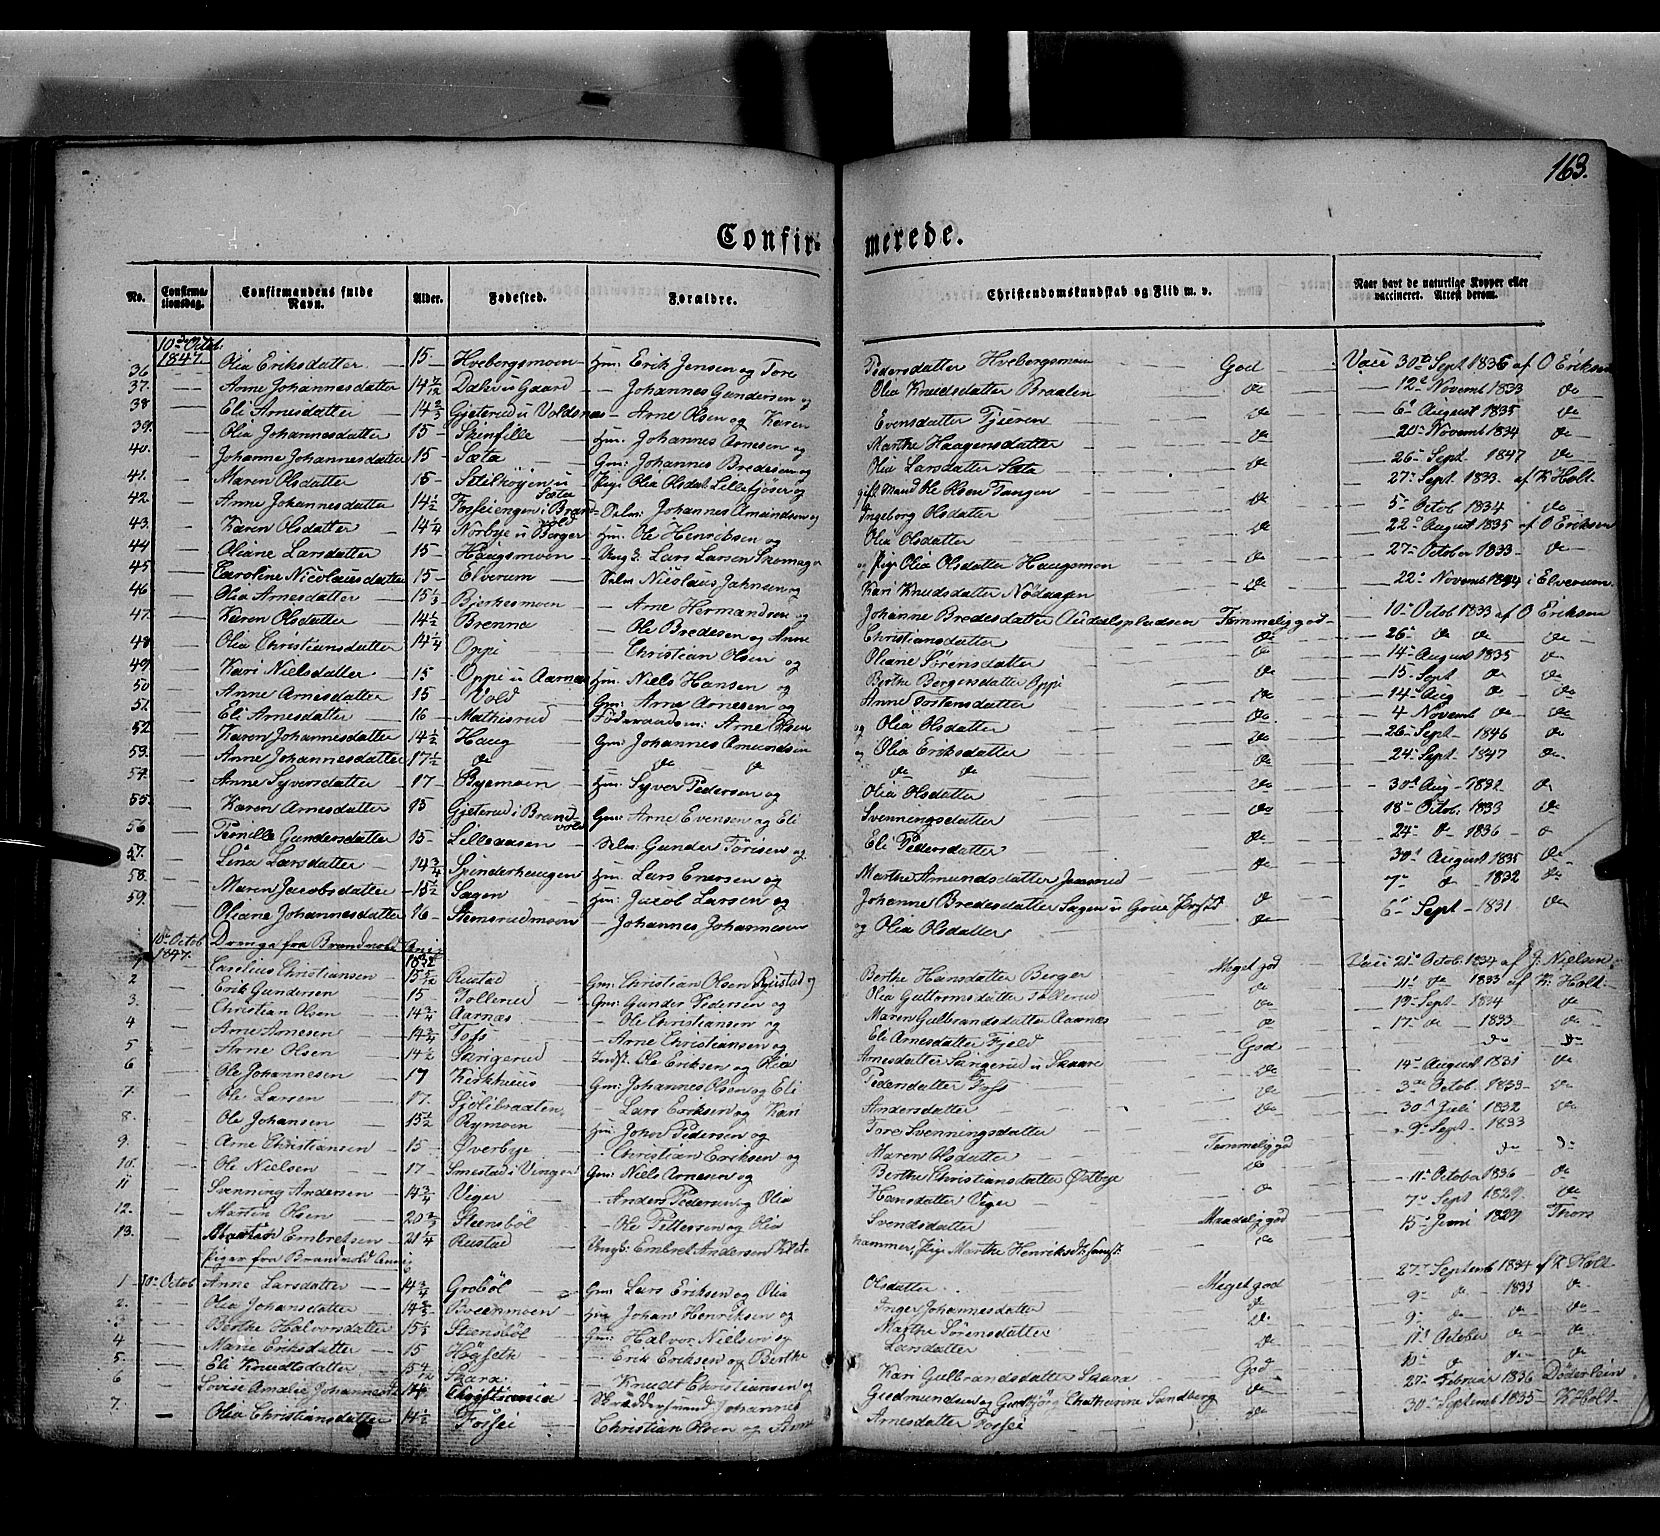 163.
Confirmerede.
No. Confirmationsdag. Confirmandens fulde Navn. Alder. Fødested. Forældre. Christendomskundskab og Flid m. v. Naar havt de naturlige Kopper eller vaccineret. Attest derom.
10de Octob. 1847.
36 Olia Eriksdatter 15 Hvebergsmoen Hm: Erik Jensen og Tore Pedersdatter Hvebergsmoen God Vacc 30te Sept 1836 af O Eriksen
37. Anne Johannesdatter 14 7/12 Dæhr u Gaard Johannes Gundersen og Olia Knudsdatter Braaten do 12te Novemb 1833 do
38 Eli Arnesdatter 14 2/3 Gjeterud u Voldsnæs Arne Olsen og Karen Evensdatter Tjuren do 6 August 1835 do
39. Olia Johannesdatter 15 Skinfille Hm. Johannes Arnesen og Marthe Haagensdatter do 20 Novemb 1834 do
40. Johanne Johannesdatter 15 Sæta Gm: Johannes Bredesen og Olia Larsdatter Sæta do 26 Sept 1847 do
41. Maren Olsdatter 15 u Sæta Pige Olia Olsdat. og gift Mand Ole Olsen Tangen 27 Sept 1833 af K Holt
42. Anne Johannesdatter 14 1/2 Fosseiengen i Brandvold Selm: Johannes Amundsen og Ingeborg Olsdatter do 5 Octob 1834 do
43. Karen Olsdatter 14 1/4 Norbye u Berger Hm: Ole Henriksen og Olia Olsdatter do 22 August 1835 af O Eriksen
44 Oliane Larsdatter 15 Haugsmoen Ung K: Lars Larsen Skomager og Pige Olia Olsdatter Haugsmoen do 27 October 1833 do
45 Caroline Nicolausdatter 15 Elverum Selm Nicolaus Jahnsen og Kari Knudsdatter do 22 Novemb 1834 i Elverum
46 Olia Arnesdatter 15 1/3 Bjerkesmoen Arne Hermandsen og Johanne Bredesdatter Audalspladsen Temmelig god 10 Octob 1833 af O Eriksen
47. Karen Olsdatter 14 1/2 Brenna Ole Bredesen og Anne Christiansdatter do 26 do do do
48 Olia Christiansdatter 14 1/4 Oppi Christian Olsen og Oliane Sørensdatter do 14 August 1835 do
49. Kari Nielsdatter 15 Oppi u Aarnæs Hm. Niels Hansen og Berthe Bergersdatter Oppi do 15 Sept do do
50 Anne Arnesdatter 15 Vold Gm: Arne Arnesen og Anne Tostensdatter do 14 Aug do do
51. Eli Arnesdatter 16 Mathisrud Føderaadsm: Arne Olsen og Olia Olsdatter do 4 Novemb do do
52 Karen Johannesdatter 14 1/2 Haug Gm: Johannes Amundsen og Olia Eriksdatter do 26 Sept 1846 do
53. Anne Johannesdatter 17 1/2 do do do do do 24 Sept 1847 do
54. Anne Syversdatter 17 Byemoen Hm: Syver Pedersen og Olia Olsdatter do 30 Aug 1832 do
55. Karen Arnesdatter 15 Gjeterud i Brandvold Gm: Arne Evensen og Eli Svenningsdatter do 18 Octob. 1833 do
56 Pernille Gundersdatter 15 Lilleaasen Selm: Gunder Tørisen og Eli Pedersdatter do 24 do 1836 do
57. Lina Larsdatter 14 3/4 Spinderhaugen Hm. Lars Enersen og Marthe Amundsdatter do 30 August 1835 do
58. Maren Jacobsdatter 15 1/2 Sagen Hm: Jacob Larsen og Johanne Bredesdatter Sagen u Grue Prgd do 7 do 1832 do
59. Oliane Johannesdatter 16 Stemsrudmoen Johannes Johannesen og Olia Olsdatter do 6 Sept 1831 do
10de Octob 1847. Drenge fra Brandvold Annex
1 Carelius Christiansen 15 5/12 Rustad Gm: Christian Olsen Rustad og Berthe Hansdatter Berger Meget god Vacc 21 Octob. 1834 af J. Nielsen
2 Erik Gundersen 15 Tollerud Gm: Gunder Pedersen og Olia Guttormsdatter Tollerud do 11 do 1833 af K. Holt
3. Christian Olsen 14 3/4 Aarnæs Ole Christiansen og Maren Gulbrandsdatter Aarnæs do 19 Sept 1834 do
4 Arne Arnesen 14 3/4 Tofs Arne Christiansen og Eli Arnesdatter Fjeld do 17 do 1833 do
5 Arne Olsen 14 1/2 Skrigerud Indst. Ole Eriksen og Olia Arnesdatter u Skaare God do do
6 Ole Johannesen 17 Kirkhuus Gm: Johannes Olsen og Eli Pedersdatter Tofs do 14 August 1831 do
7. Ole Larsen 17. Sjølibraaten Lars Eriksen og Kari Andersdatter do 3 Octob. 1833 do
8. Ole Johansen 15 1/2 Rymoen Hm: Johan Pedersen og Tore Svenningsdatter do 30 Juli 1832 do
9. Arne Christiansen 15 Øverbye Christian Eriksen og Maren Olsdatter Temmelig god 9 Sept. 1833
10. Ole Nielsen 17 Smestad i Vinger Gm: Niels Arnesen og Berthe Christiansdatter Østbye do do do
11 Svenning Andersen 14 3/4 Viger Anders Pedersen og Olia Hansdatter Viger do 11 October 1836 do
12. Martin Olsen 20 2/3 Steensbøl Ole Pettersen og Olia Svendsdatter Maadelig god 7 Sept 1829 do
13. Embretsen 21 1/4 Rustad Ungk: Embret Andersen hammer, Pige Marthe Henriksdt: do 15 Juni 1829 Thom
Piger fra Brandvold Annex
1 10de Octob Anne Larsdatter 14 3/4 Grøbøl Gm: Lars Eriksen og Olia Olsdatter Meget god 27 Septemb 1834 af K Holt
2. Olia Johansdatter 14 2/3 Breenmoen Hm Johan Henriksen og Inger Johannesdatter do 9 do 1833 do
3 Berthe Halvorsdatter 15 1/3 Steensbøl Gm: Halvor Nielsen og Marthe Sørensdatter do 9 do do do
4 Marie Eriksdatter 15 Høgseth Erik Eriksen og Berthe Larsdatter do 11 October do do
5. Eli Knudtsdatter 15 4/12 Skara Knudt Christiansen og Kari Gulbrandsdatter Skara God 10 do do do
6 Lovise Amalie Johannesd. 14 Christiania Skræddersvend Johannes Gudmundsen og Gudbjørg Chatharina Sandberg do 27 Februar 1836 Døderlein
7. Olia Christiansdatter 14 1/2 Fossei Christian Olsen og Anne Arnesdatter Fossei do 30 Septemb 1835 K Holt